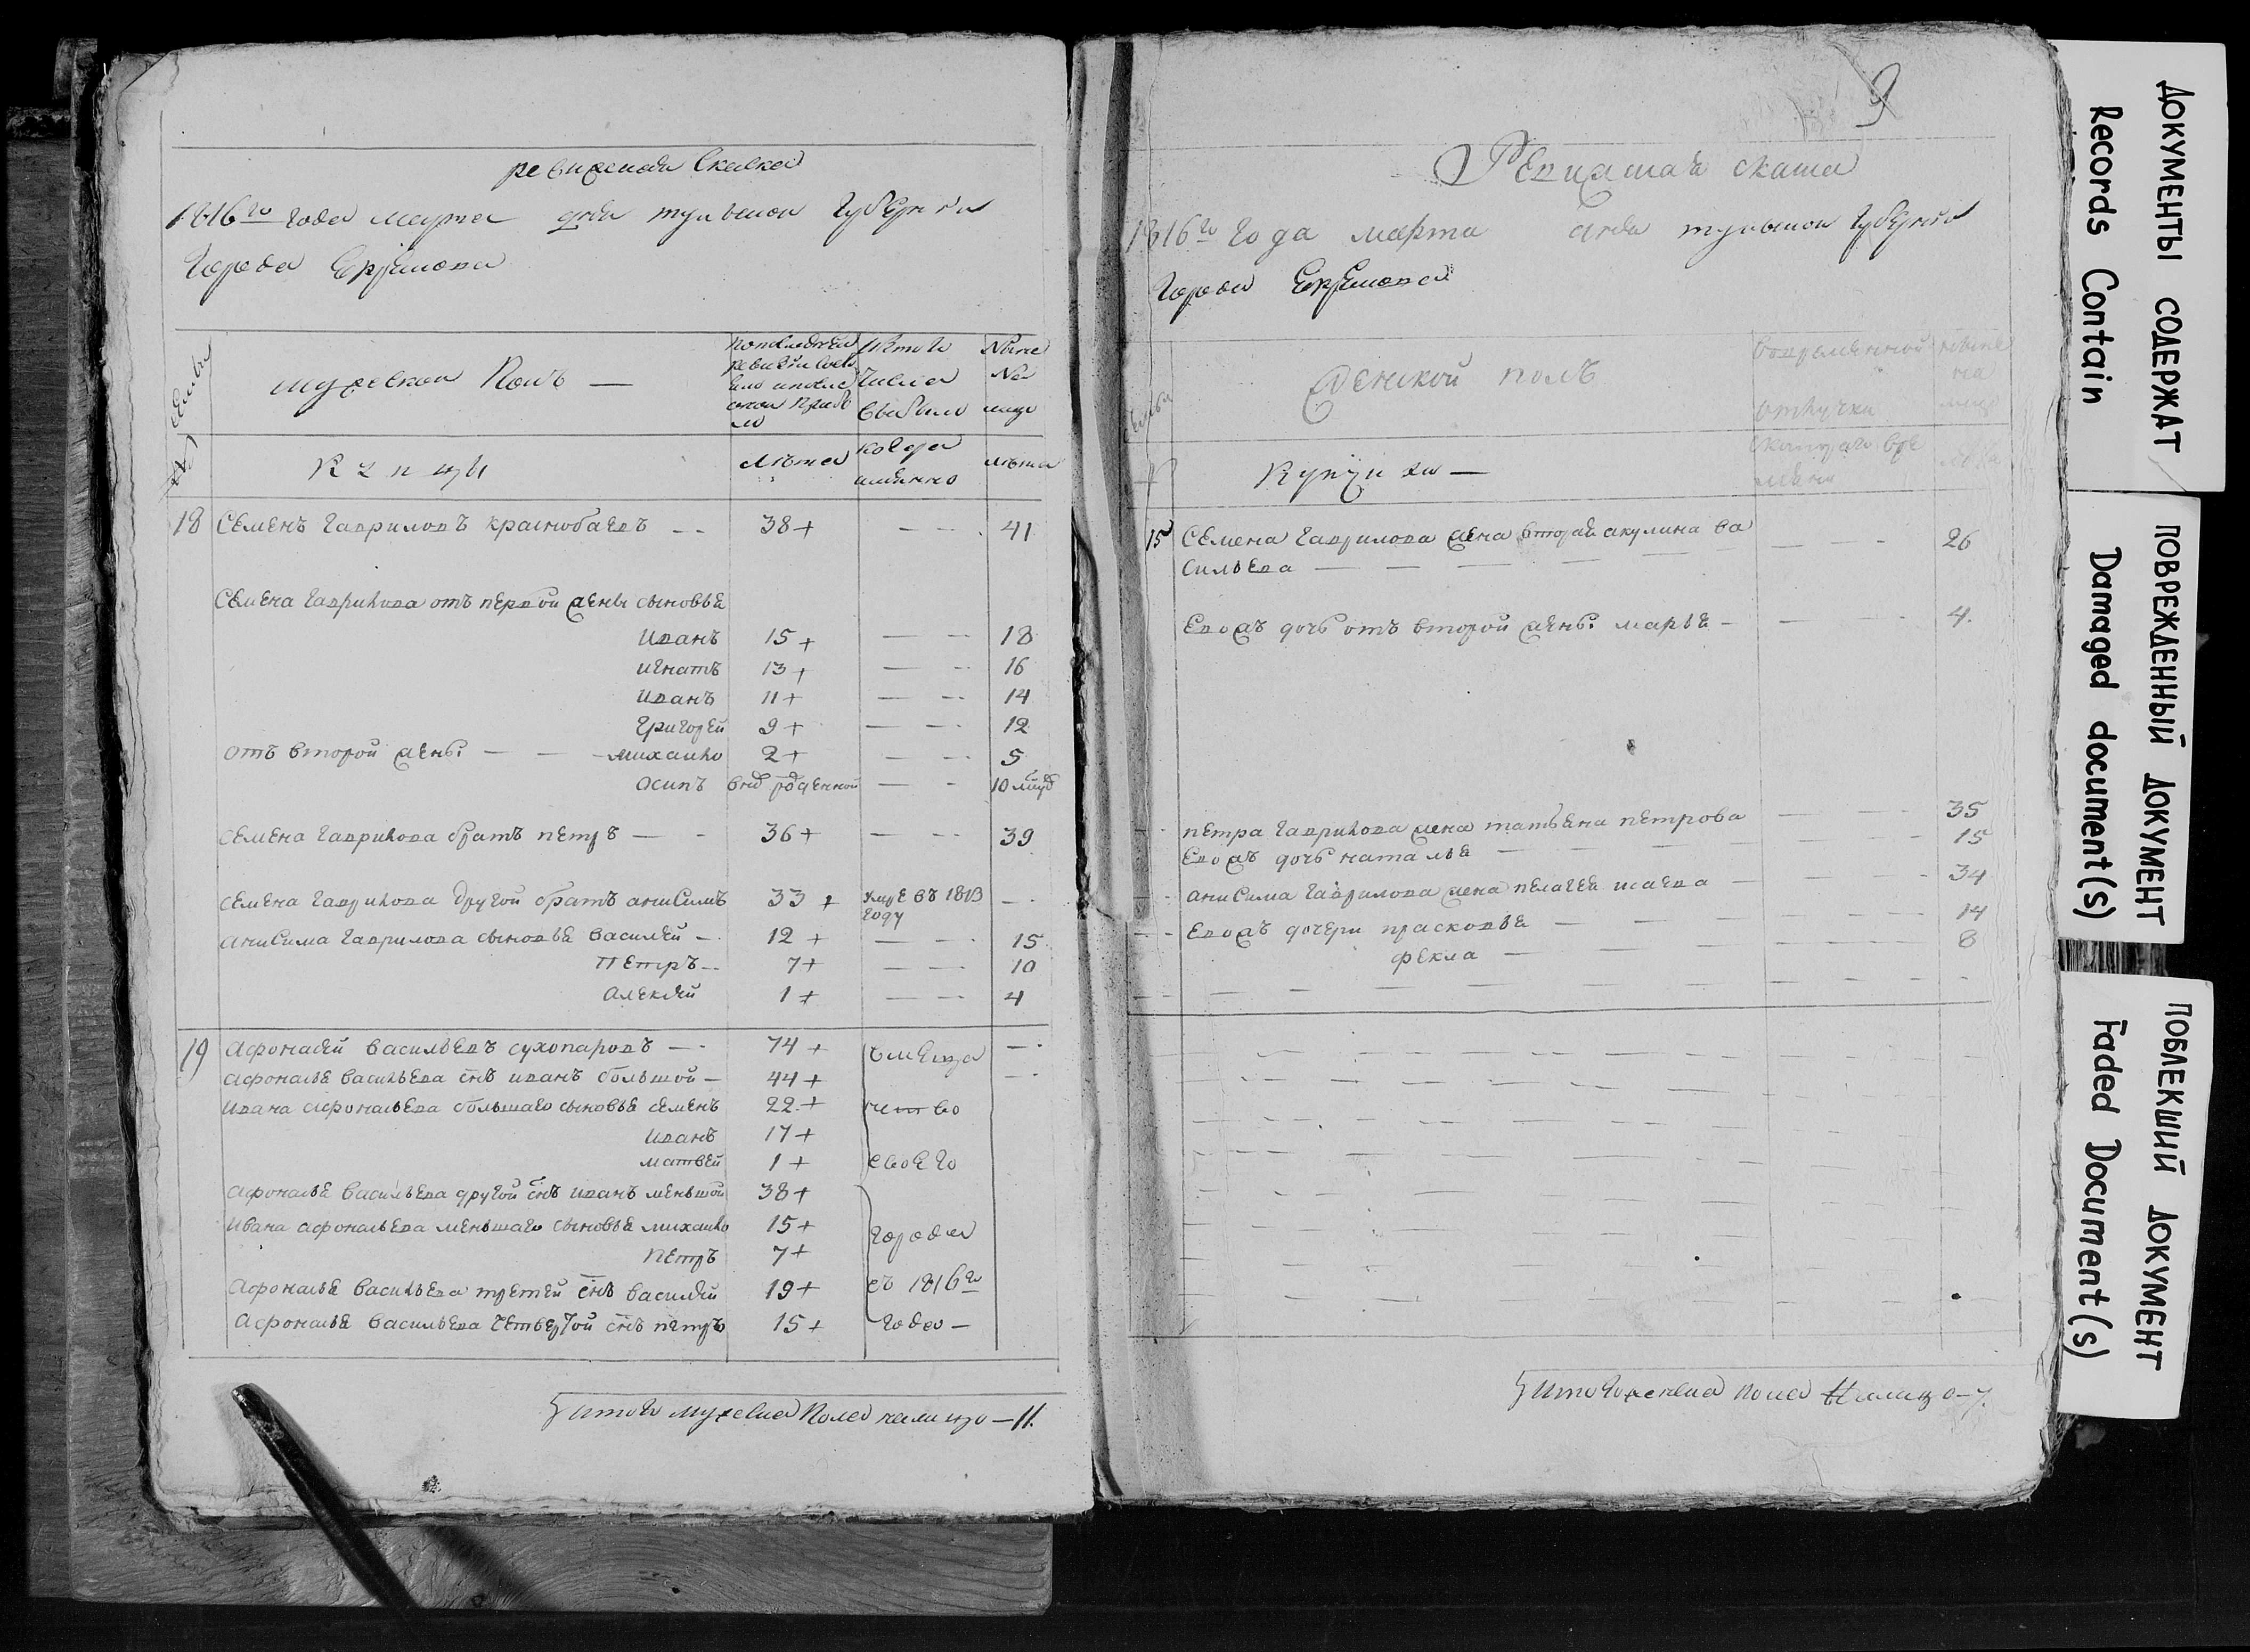 ревизская Скаска
1816го года марта дня тульской губернии
Города Ефремова
№ семьи
мужеской Полъ —
По последней ревизіи состояло и после оной прибыло
Изтого числа выбыло
Ныне на лицо
Купцы
Лѣта
когда имянно
лѣта
18 Семенъ Гавриловъ Краснобаевъ - - 38+ — - - 41
Семена Гаврилова отъ первой жены сыновья
Иванъ 15+ — - - 18
Игнатъ 13+ — - - 16
Иванъ 11+ — - - 14
Григорей 9+ — - - 12
отъ второй жены — — Михаило 2+ — - - 5
Осипъ вновь рожденной — - 10 месяцъ
Семена Гаврилова братъ Петръ — - 36+ — - - 39
Семена Гаврилова другой братъ анисимъ 33+ умре въ 1813 году - -
анисима Гаврилова сыновья василей - 12+ — - - 15
Петръ - - 7+ — - - 10
Алексѣй 1+ — - - 4
19 Афонасей васильевъ сухопаровъ — - 74+ - -
афонасья васильева снъ иванъ большой - 44+ - -
Ивана афонасьева большаго сыновья семенъ 22+
Иванъ 17+
матвей 1+
афонасья васильева другой снъ иванъ меньшой 38+
Ивана афонасьева меньшаго сыновья михаило 15+
Петръ 7+
Афонасья васильева третей снъ василей 19+
Афонасья васильева четвертой снъ петръ 15+
въ мещанство своего города съ 1816го года —
Итого мужеска Пола налицо — 11.
9
Ревизская скаска
1816го года марта дня тульской губерніи
Города Ефремова
семьи
Женской полъ
Во временной отлучке
ныне на лицо
Купчихи —
Скотораго времени
Лѣта
18 Семена Гаврилова жена вторая акулина ва
сильева — — — — — - - 26
Евожъ дочь отъ второй жены марья - — - - 4.
петра Гаврилова жена татьяна петрова — - - 35
Евожъ дочь наталья — — 15
анисима Гаврилова жена пелагея исаева — 34
Евожъ дочери прасковья — 14
фекла — 8
Итого женска пола на лицо — 7.
ДОКУМЕНТЫ СОДЕРЖАТ
Records Contain
ПОВРЕЖДЕННЫЙ ДОКУМЕНТ
Damaged document(s)
ПОБЛЕКШИЙ ДОКУМЕНТ
Faded Document(s)